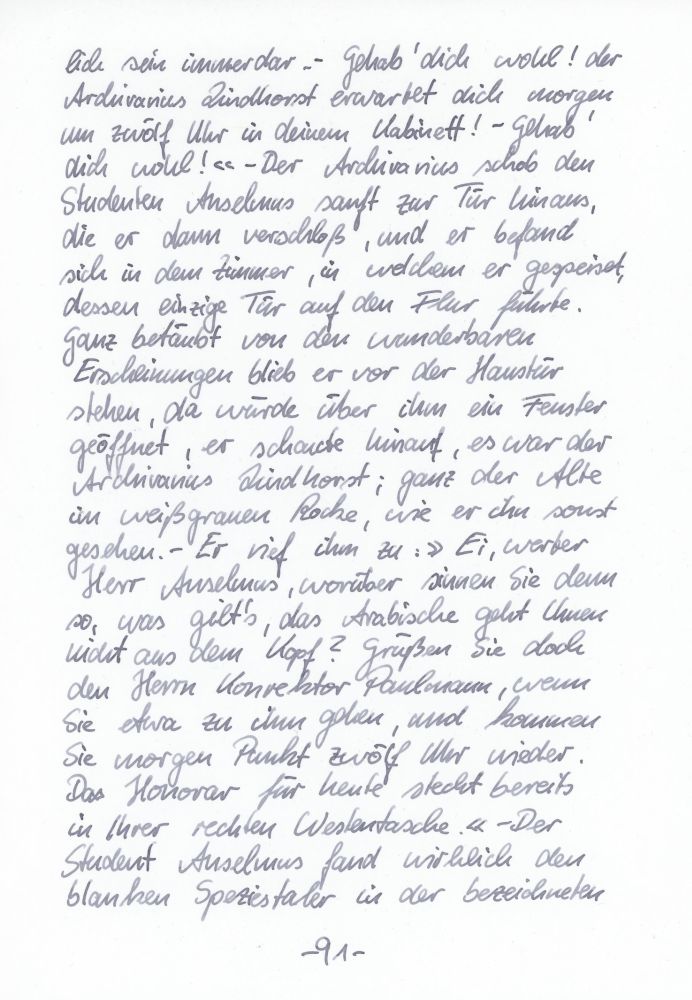 lich sein immerdar. - Gehab' dich wohl! der
Archivarius Lindhorst erwartet dich morgen
um zwölf Uhr in deinem Kabinett! - Gehab'
dich wohl!« - Der Archivarius schob den
Studenten Anselmus sanft zur Tür hinaus,
die er dann verschloß, und er befand
sich in dem Zimmer, in welchem er gespeiset,
dessen einzige Tür auf den Flur führte.
Ganz betäubt von den wunderbaren
Erscheinungen blieb er vor der Haustür
stehen, da wurde über ihm ein Fenster
geöffnet, er schaute hinauf, es war der
Archivarius Lindhorst; ganz der Alte
im weißgrauen Rocke, wie er ihn sonst
gesehen. - Er rief ihm zu: » Ei, werter
Herr Anselmus, worüber sinnen Sie denn
so, was gilt's, das Arabische geht Ihnen
nicht aus dem Kopf? Grüßen Sie doch
den Herrn Konrektor Paulmann, wenn
Sie etwa zu ihm gehen, und kommen
Sie morgen Punkt zwölf Uhr wieder.
Das Honorar für heute steckt bereits
in Ihrer rechten Westentasche.« - Der
Student Anselmus fand wirklich den
blanken Speziestaler in der bezeichneten
-91-